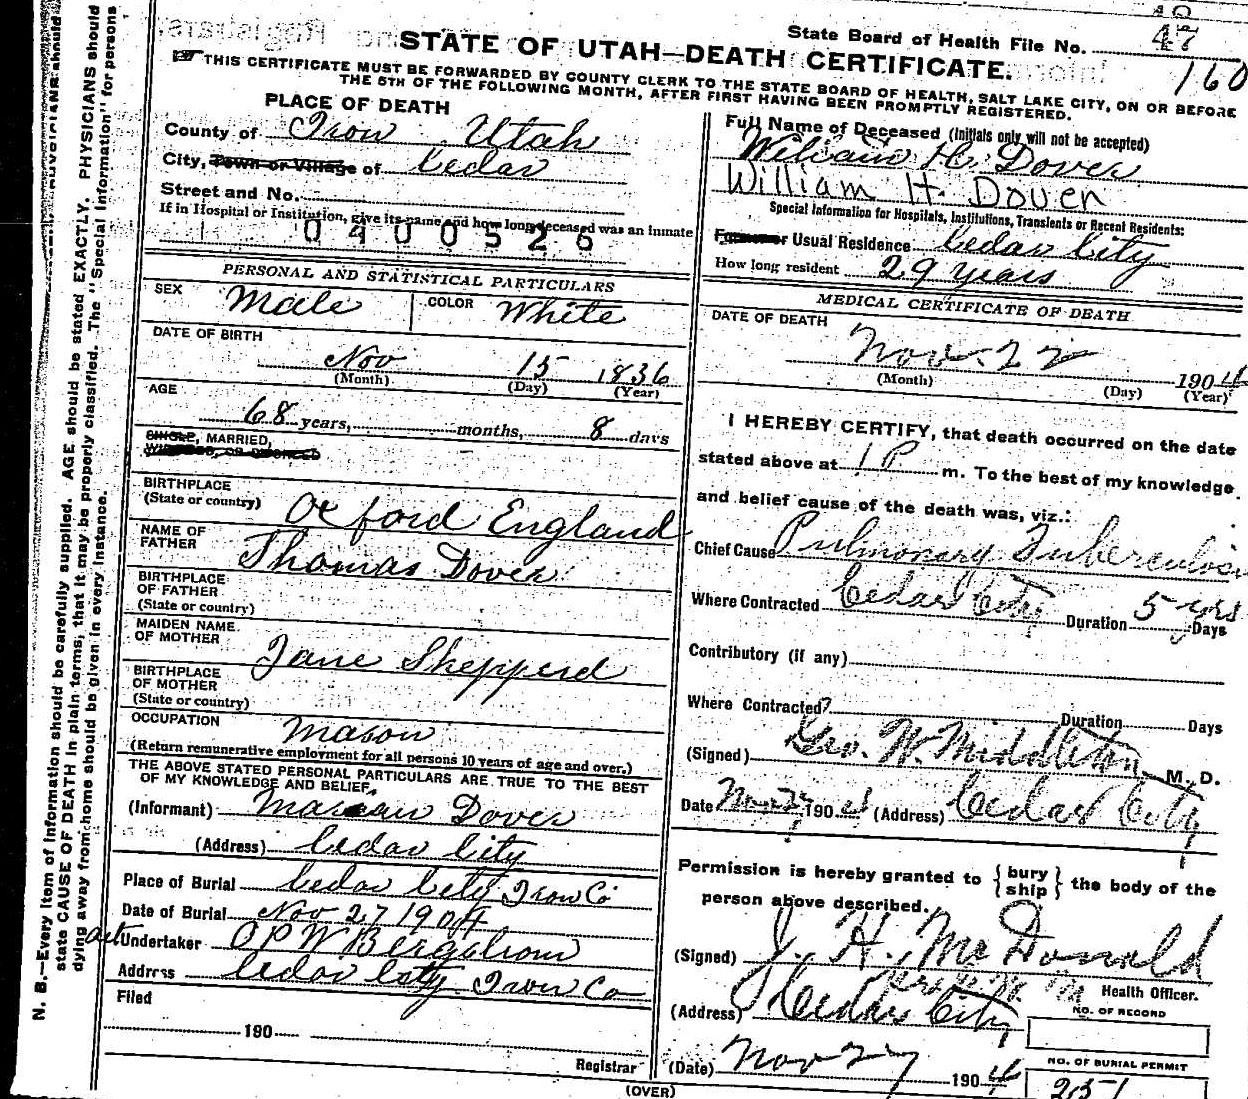 N. B.—Every item of information should be carefully supplied. AGE should be stated EXACTLY. PHYSICIANS should
state CAUSE OF DEATH in plain terms, that it may be properly classified. The "Special Information" for persons
dying away from home should be given in every instance.
State Board of Health File No. 47
160
STATE OF UTAH—DEATH CERTIFICATE.
THIS CERTIFICATE MUST BE FORWARDED BY COUNTY CLERK TO THE STATE BOARD OF HEALTH, SALT LAKE CITY, ON OR BEFORE
THE 5TH OF THE FOLLOWING MONTH, AFTER FIRST HAVING BEEN PROMPTLY REGISTERED.
PLACE OF DEATH
County of Iron Utah
City, Town or Village of Cedar
Street and No.
If in Hospital or Institution, give its name and how long deceased was an inmate
0400526
PERSONAL AND STATISTICAL PARTICULARS
SEX Male COLOR White
DATE OF BIRTH
Nov 15 1836
(Month) (Day) (Year)
AGE
68 years, months, 8 days
SINGLE, MARRIED,
WIDOWED, OR DIVORCED
BIRTHPLACE
(State or country) Oxford England
NAME OF
FATHER Thomas Dover
BIRTHPLACE
OF FATHER
(State or country)
MAIDEN NAME
OF MOTHER Jane Shepperd
BIRTHPLACE
OF MOTHER
(State or country)
OCCUPATION Mason
(Return remunerative employment for all persons 10 years of age and over.)
THE ABOVE STATED PERSONAL PARTICULARS ARE TRUE TO THE BEST
OF MY KNOWLEDGE AND BELIEF.
(Informant) Dover
(Address) Cedar City
Place of Burial Cedar City Iron Co
Date of Burial Nov 27 1904
act Undertaker O P W Bergstrom
Address Cedar City Iron Co
Filed
190
Registrar
Full Name of Deceased (Initials only will not be accepted)
William H. Dover
William H. Dover
Special Information for Hospitals, Institutions, Transients or Recent Residents:
Former or Usual Residence Cedar City
How long resident 29 years
MEDICAL CERTIFICATE OF DEATH
DATE OF DEATH
Nov. 22 1904
(Month) (Day) (Year)
I HEREBY CERTIFY, that death occurred on the date
stated above at 1 P. m. To the best of my knowledge
and belief cause of the death was, viz.:
Chief Cause Pulmonary Tuberculosis
Where Contracted Cedar City Duration 5 yrs Days
Contributory (if any)
Where Contracted? Duration Days
(Signed) Geo. W. Middleton M. D.
Date Nov 27 1904 (Address) Cedar City
Permission is hereby granted to { bury ship } the body of the
person above described.
(Signed) J. H. McDonald
Health Officer.
(Address) Cedar City
NO. OF RECORD
(Date) Nov 27 1904
NO. OF BURIAL PERMIT
251
(OVER)